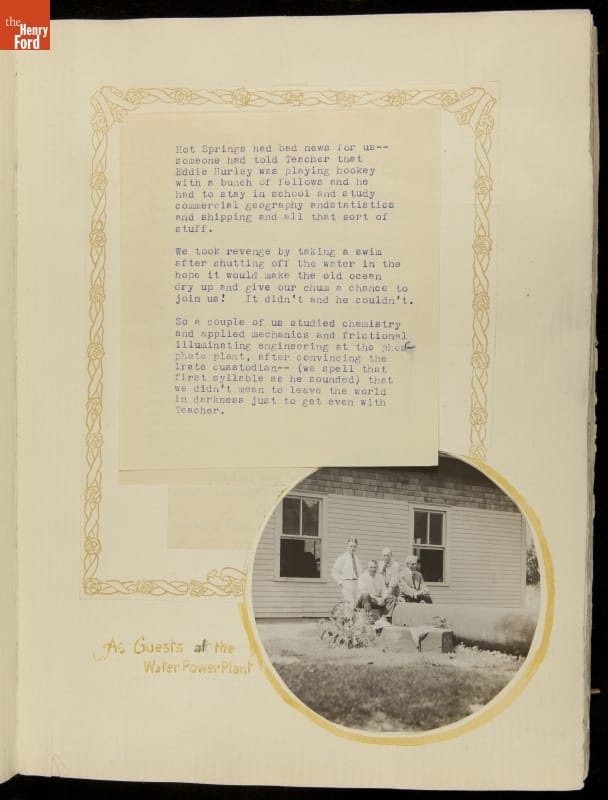 the
Henry
Ford
Hot Springs had bad news for us--
someone had told Teacher that
Eddie Hurley was playing hookey
with a bunch of fellows and he
had to stay in school and study
commercial geography andstatistics
and shipping and all that sort of
stuff.
We took revenge by taking a swim
after shutting off the water in the
hope it would make the old ocean
dry up and give our chum a chance to
join us! It didn't and he couldn't.
So a couple of us studied chemistry
and applied mechanics and frictional
illuminating engineering at the phos-
phate plant, after convincing the
irate cusstodian-- (we spell that
first syllable as he sounded) that
we didn't mean to leave the world
in darkness just to get even with
Teacher.
As Guests at the
Water Power Plant